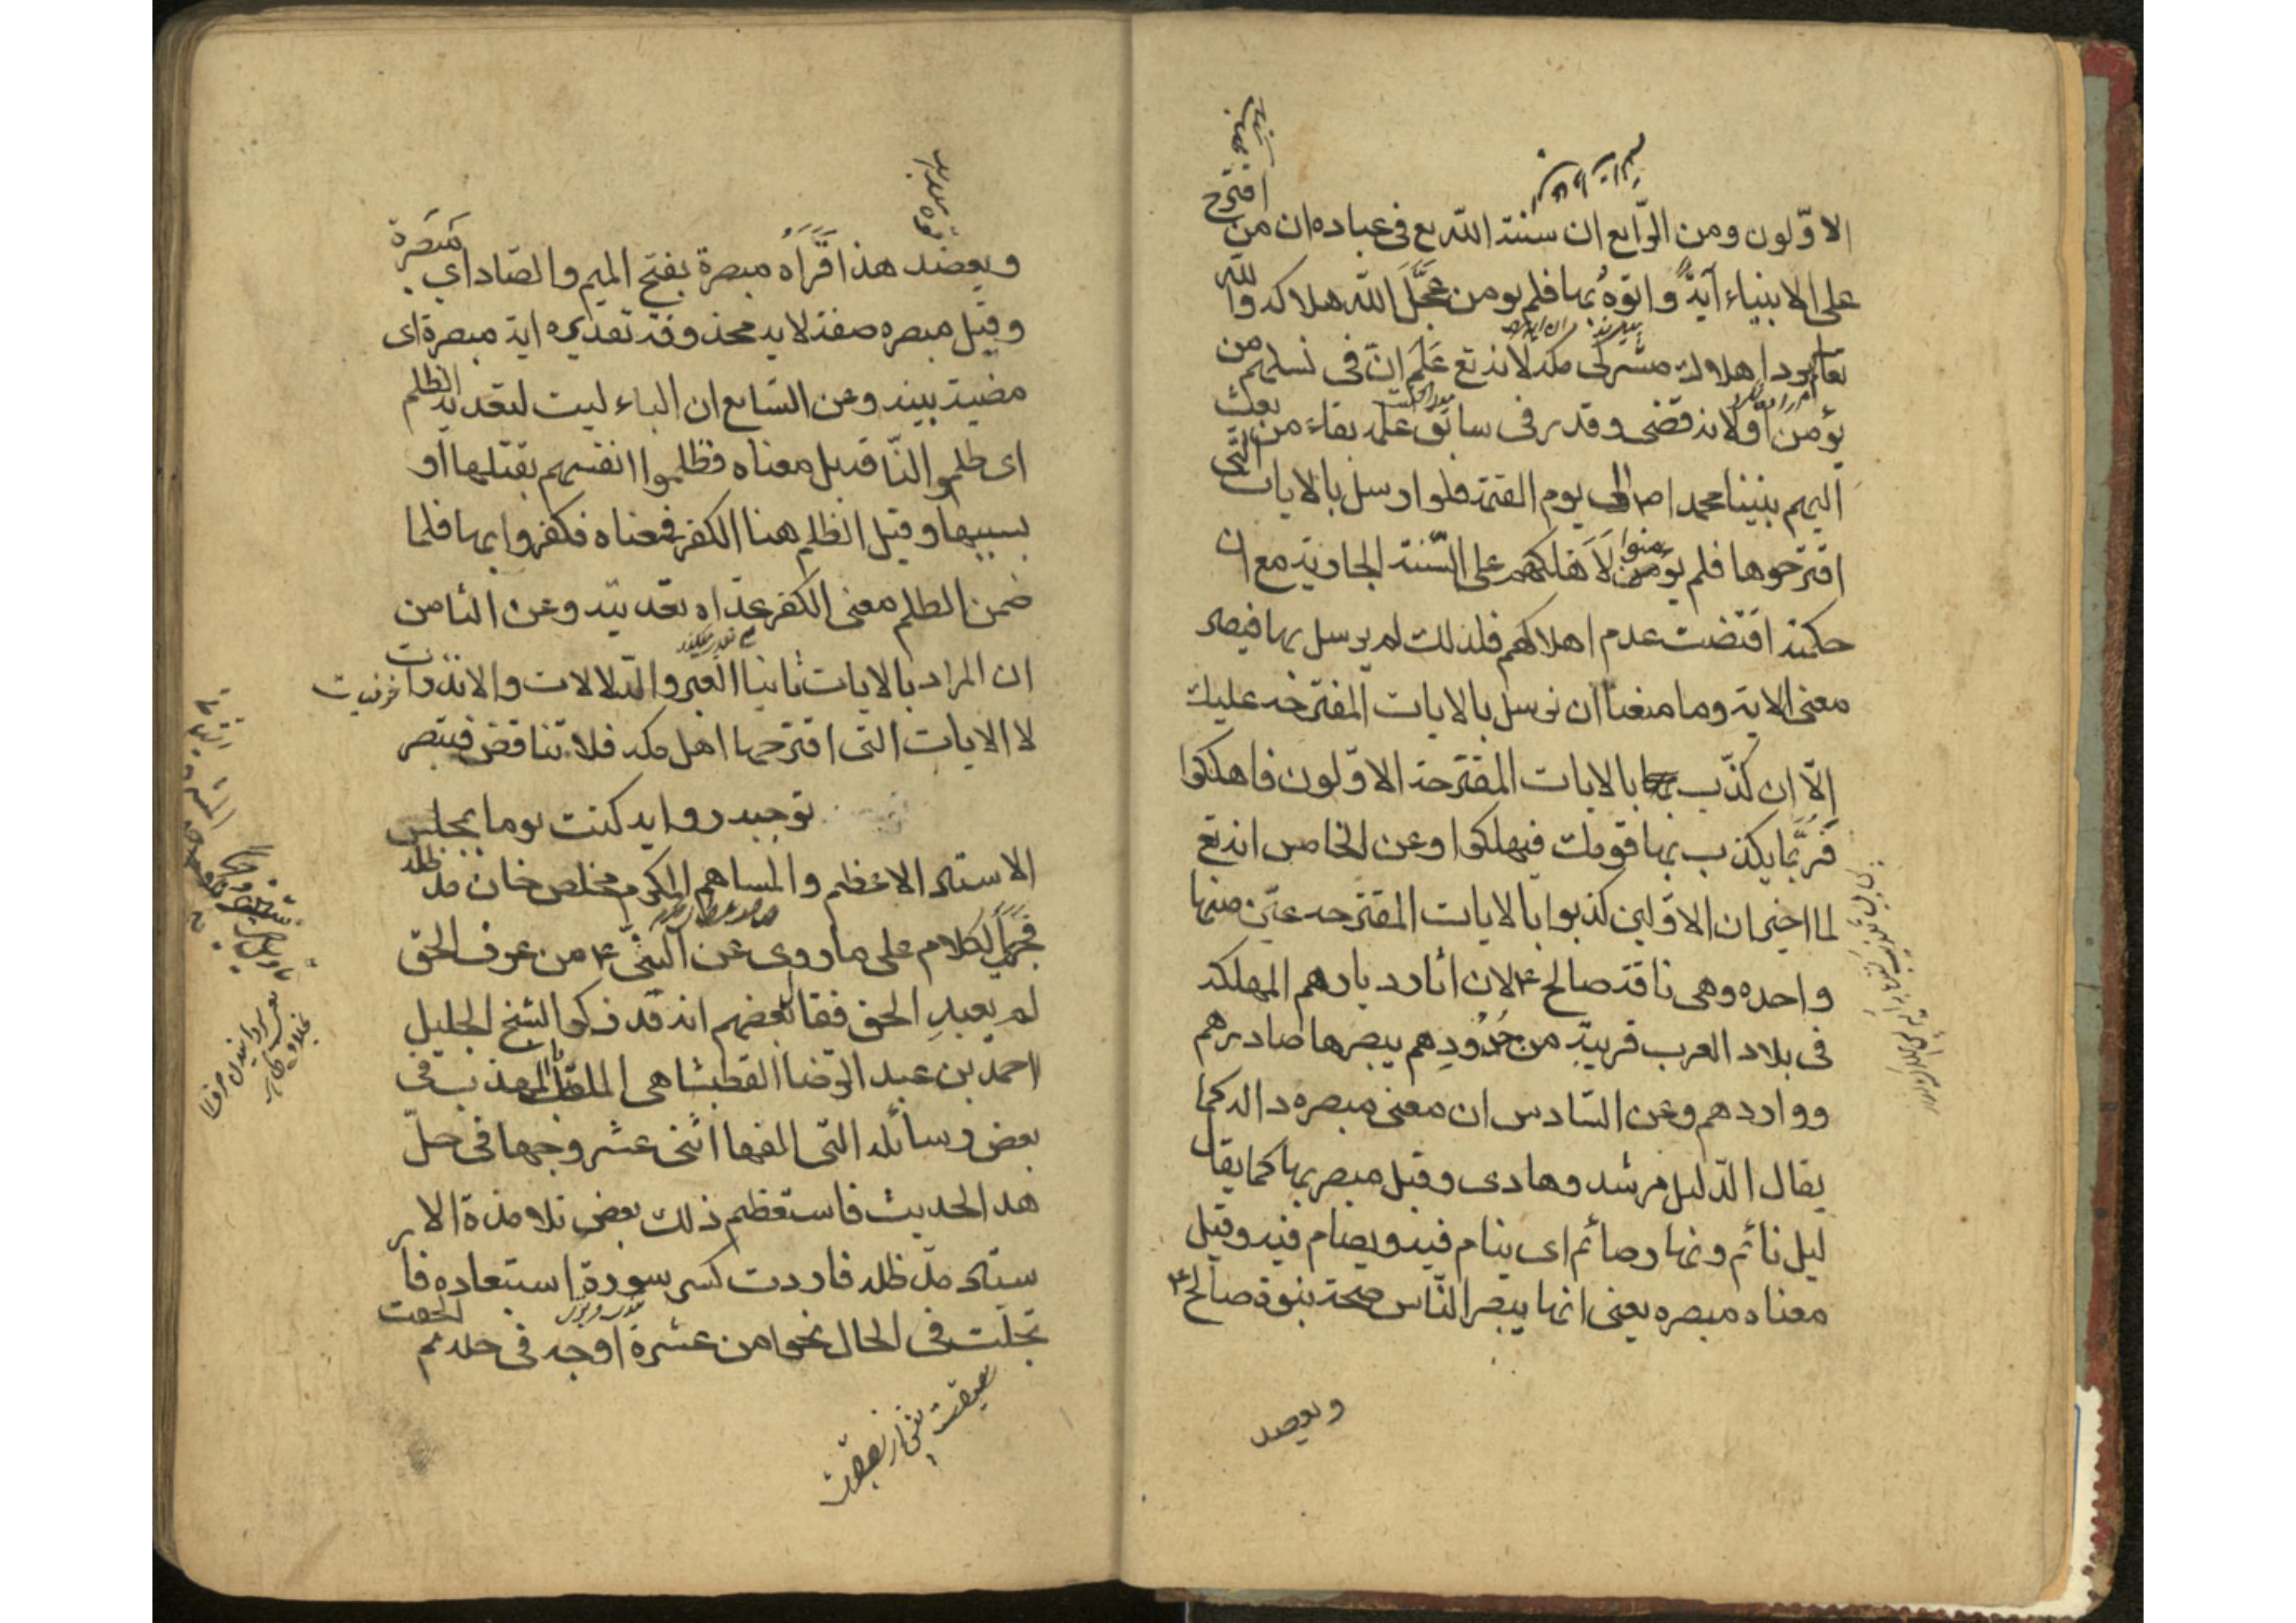 الاوّلون ومن الرّابع ان سنتة الله تع فى عباده ان من اقترح
على الانبياء آيةً واتوهُ بها فلم يومن عجَّلَ الله هلاكه والله
تعا لم يرد اهلاك مشركى مكه لانه تع عَلِمَ انّ فى نسلهم من
يؤمن اولانه قضى وقدر فى سابق علمه بقاء من بعث
اليهم نبينا محمد ا ص الى يوم القيمة فلو ارسل بالايات التى
اقترحوها فلم يؤمنوا لَاَهلكهم على السّنة الجارية مع ان
حكمته اقتضت عدم اهلاكهم فلذلك لم يرسل بها فيصير
معنى الاية وما منعنا ان نرسل بالايات المقترحة عليك
اِلّا ان كذّب بالايات المقترحة الاوّلون فاهلكوا
فَرُبَّما يكذب بها قومك فيهلكوا وعن الخامس انه تع
لما اخبر ان الاوّلين كذبوا بالايات المقترحه عيّن منها
واحده وهى ناقة صالح ع لان اثار ديارهم المهلكه
فى بلاد العرب قريبة من حُدُودِهم يبصرها صادرهم
وواردهم وعن السّادس ان معنى مبصره داله كما
يقال الدّليل مرشد وهادى وقيل مبصر بها كما يقال
ليل نائم ونهار صائم اى ينام فيه ويصام فيه وقيل
معناه مبصره يعنى انها يبصر النّاس صحة نبوة صالح ع
ويعضد
ويعضد هذا قَرَاَهُ مبصرة بفتح الميم والصّاد اى تبصرة
وقيل مبصره صفة لايه محذوفة تقديره اية مبصرة اى
مضيئة بينه وعن السّابع ان الباء ليست لتعدية الظلم
اى ظلموا النّاقة بل معناه فظلموا انفسهم بقتلها او
بسببها وقيل الظلم هنا الكفر فمعناه فكفروا بها فلما
ضمن الظلم معنى الكفر عدّاه تعديته وعن الثامن
ان المراد بالايات ثانيا العبر والدّلالات والانذرات
لا الايات التى اقترحها اهل مكه فلا تناقض فتبصر
توجيه روايه كنت يوما بمجلس
الاستاد الاعظم والمساهم المكرم مخلص خان مد ظله
فجرى الكلام على ما روى عن النبىّ ع من عرف الحق
لم يعبدِ الحق فقال بعضهم انه قد ذكر الشيخ الجليل
احمد بن عبد الرّضا القطبشاهى الملقب بالمهذب فى
بعض رسائله التى الفها اثنى عشر وجها فى حلّ
هذا الحديث فاستعظم ذلك بعض تلامذة الا
ستاد مدّ ظله فاردت كسر سورة استبعاده فا
تجلت فى الحال نحوا من عشرة اوجه فى حله ثم الحقت